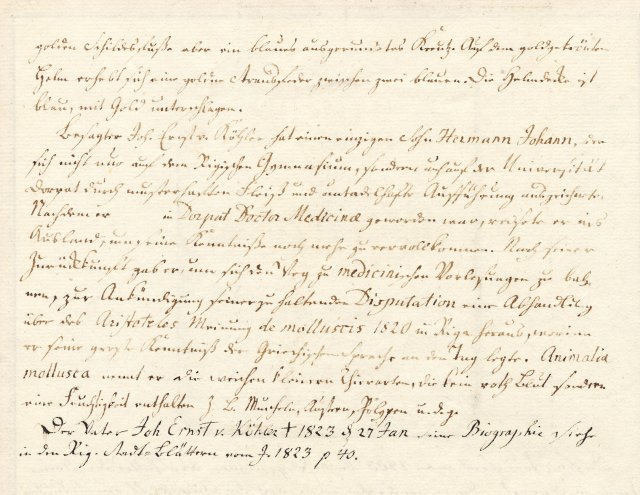 golden Schildesfuße aber ein blaues ausgerundetes Kreutz. Auf dem goldgekrönten
Helm erhebt sich eine goldne Straußfeder zwischen zwei blauen. Die Helmdecke ist
blau, mit Gold unterschlagen.
Besagter Joh. Ernst v. Köhler hat einen einzigen Sohn Hermann Johann, der
sich nicht nur auf dem Rigischen Gymnasium, sondern auch auf der Universität
Dorpat durch musterhaften Fleiß und untadelhafte Aufführung auszeichnete.
Nachdem er in Dorpat Doctor Medicinæ geworden war, reisete er ins
Ausland, um seine Kenntniße noch mehr zu vervollkommnen. Nach seiner
Zurückkunft gab er, um sich den Weg zu medicinischen Vorlesungen zu bah-
nen, zur Ankündigung seiner zu haltenden Disputation eine Abhandlung
über des Aristoteles Meinung de molluscis 1820 in Riga heraus, worinn
er seine große Kenntniß der Griechischen Sprache an den Tag legte. Animalia
mollusca nennt er die weichen kleinern Thierarten, die kein roth Blut sondern
eine Feuchtigkeit enthalten z. B. Muscheln, Austern, Polypen u. d. g.
Der Vater Joh Ernst v. Köhler † 1823 d 27 Jan seine Biographie siehe
in den Rig. Stadt-Blättern vom J. 1823 p 40.